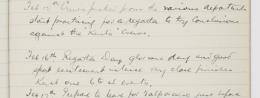 Feb 15th Crews picked from the various departments
start practising for a regatta to try conclusions
against the "Kents" Crews.
Feb 16th Regatta Day glorious day and good
sport witnessed intense very close finishes
Kent one 6 to 4 events.
Feb 17th Prepare to leave for Valparaiso just before